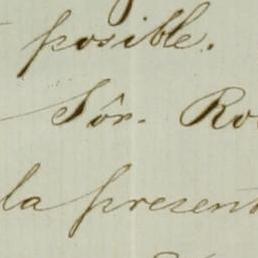 posible.
Sôr. Ro
la present